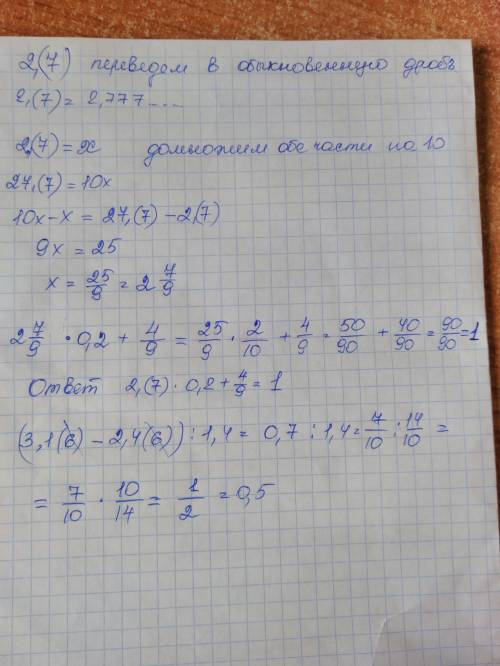 2,(7) переведем в обыкновенную дробь
2,(7) = 2,777....
2,(7) = x домножим обе части на 10
27,(7) = 10x
10x - x = 27,(7) - 2,(7)
9x = 25
x = 25/9 = 2 7/9
2 7/9 · 0,2 + 4/9 = 25/9 · 2/10 + 4/9 = 50/90 + 40/90 = 90/90 = 1
Ответ 2,(7) · 0,2 + 4/9 = 1
(3,1(6) - 2,4(6)) : 1,4 = 0,7 : 1,4 = 7/10 : 14/10 =
= 7/10 · 10/14 = 1/2 = 0,5